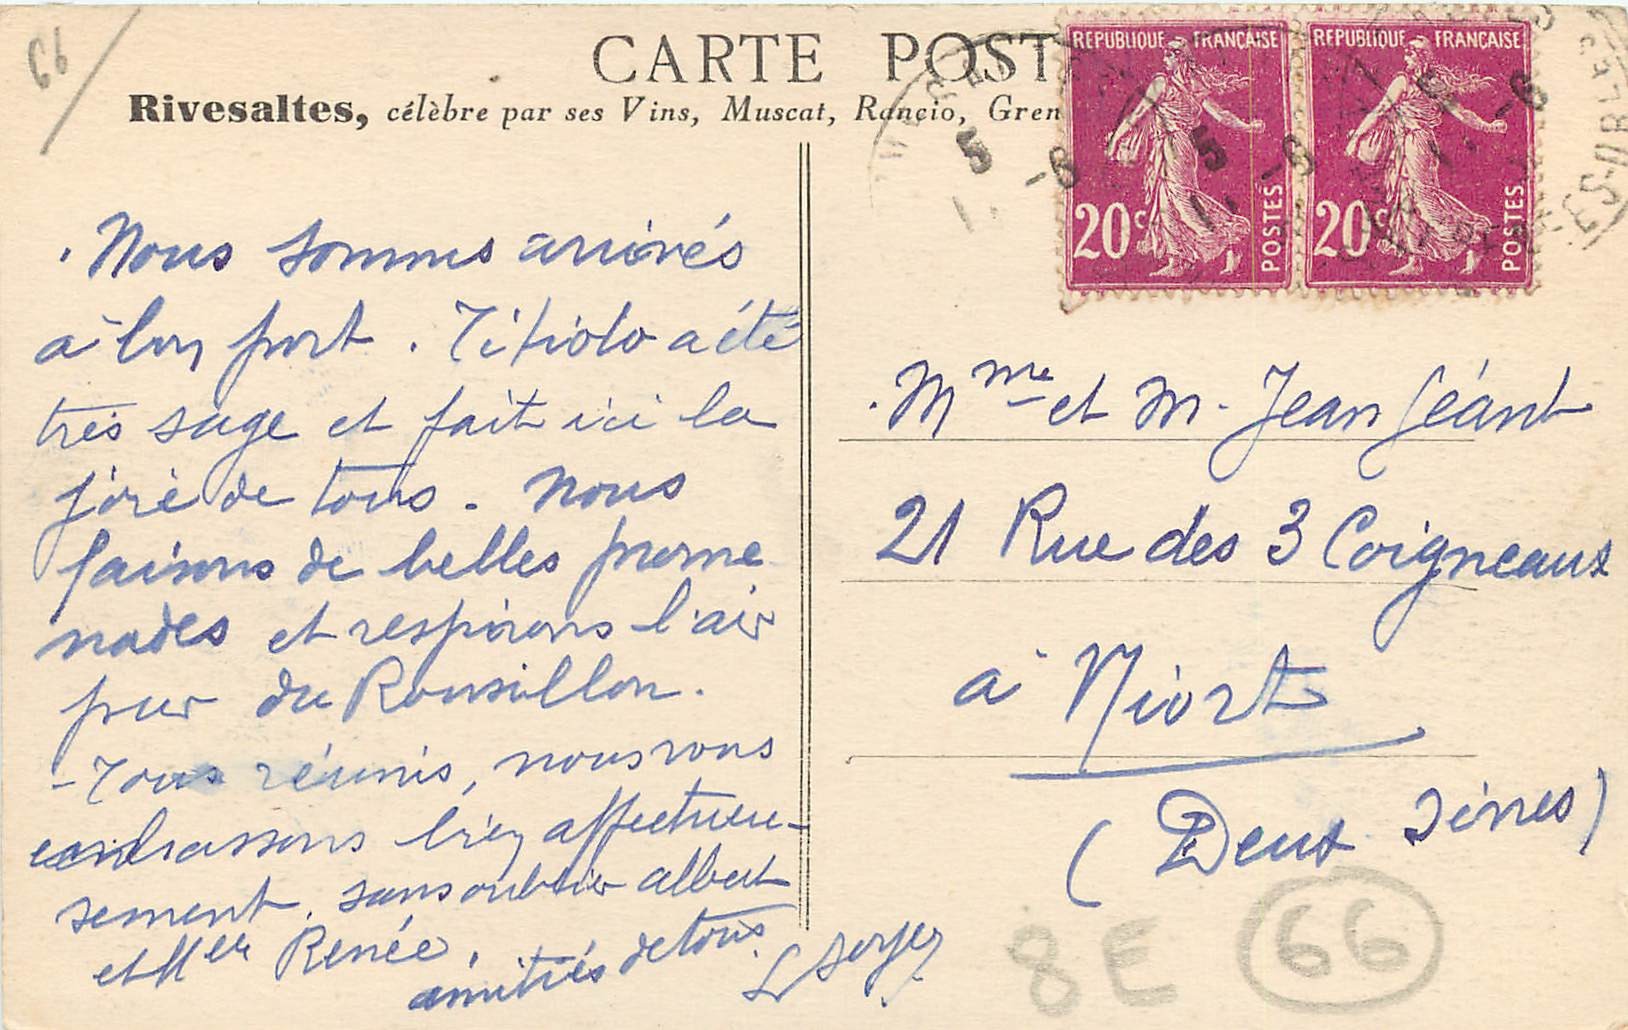 66
CARTE POST
Rivesaltes, célèbre par ses Vins, Muscat, Rancio, Gren
REPUBLIQUE FRANÇAISE
20c POSTES
REPUBLIQUE FRANÇAISE
20c POSTES
5 -6
5 -6
-6
Nous sommes arrivés
à bon port. Titiolo a été
très sage et fait ici la
joie de tous. Nous
faisons de belles prome
nades et respirons l'air
pur du Roussillon.
- Tous réunis, nous vous
embrassons bien affectueu-
sement, sans oublier Albert
et Melle Renée,
amitiés de tous.
Mme et M. Jean Géant
21 Rue des 3 Coigneaux
à Niort
(Deux Sèvres)
8E 66